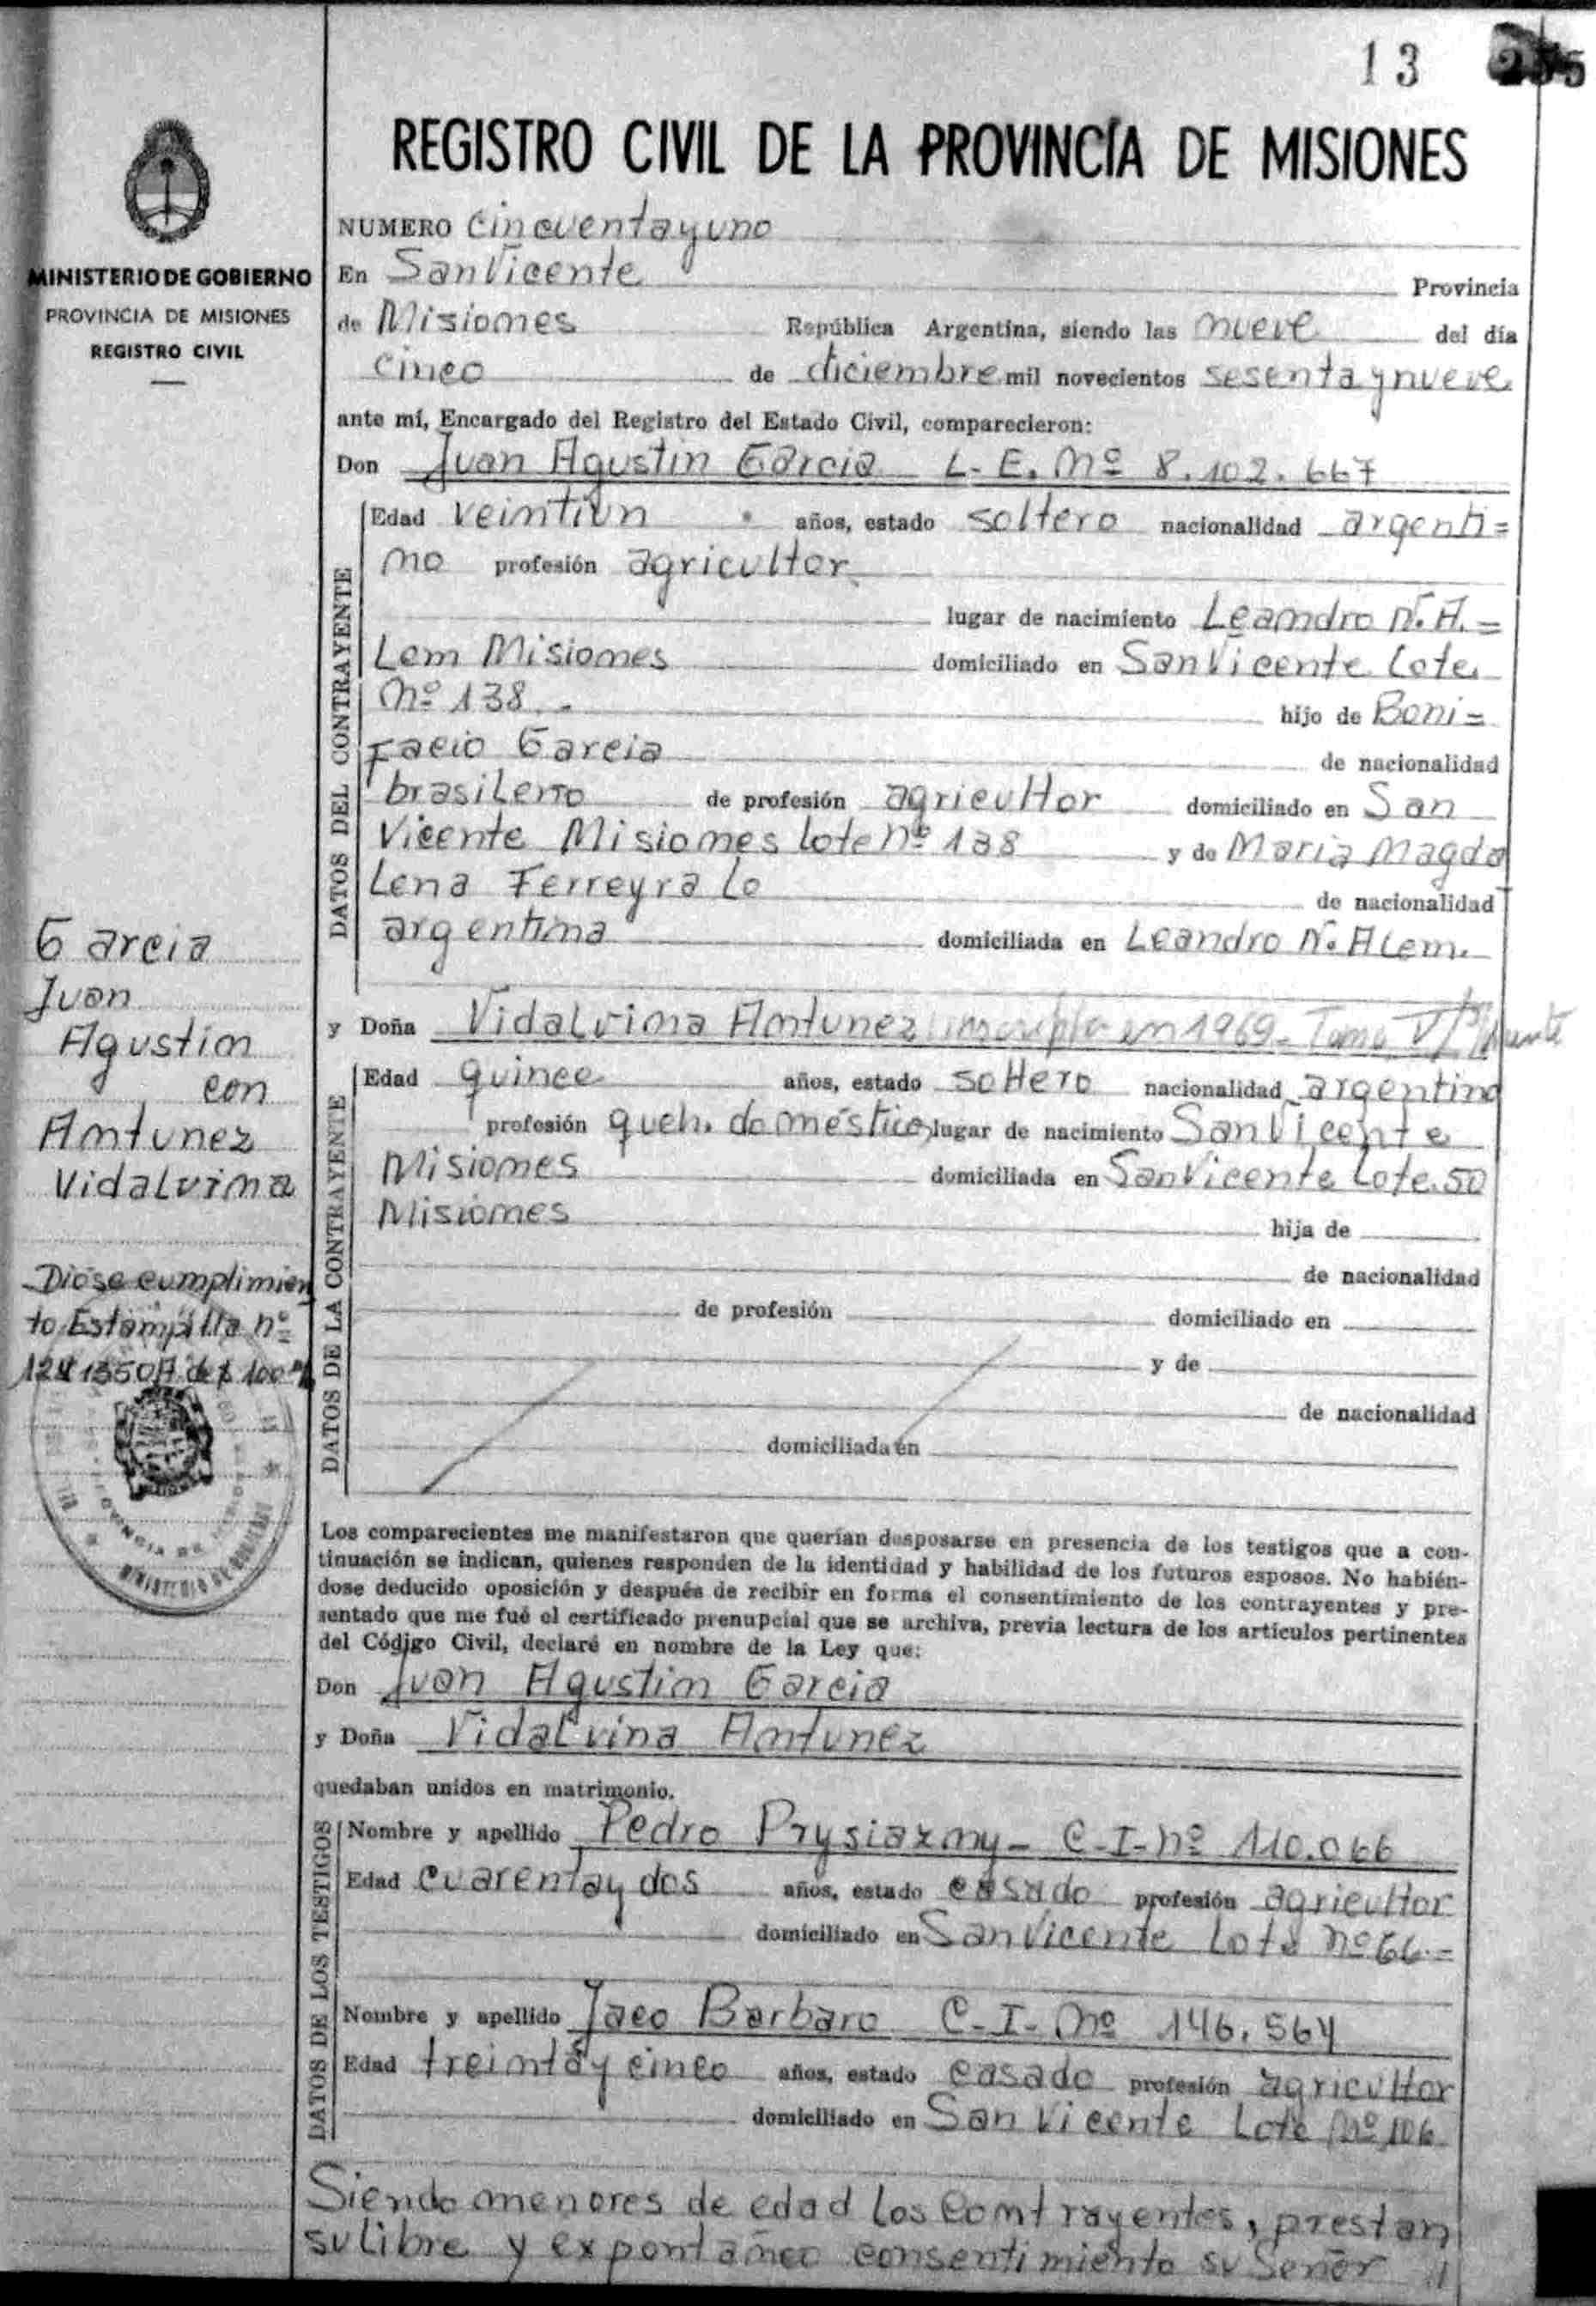 13
REGISTRO CIVIL DE LA PROVINCÍA DE MISIONES
MINISTERIO DE GOBIERNO
PROVINCIA DE MISIONES
REGISTRO CIVIL
NUMERO Cincuentayuno
En San Vicente Provincia
de Misiones República Argentina, siendo las nueve del día
cinco de diciembre mil novecientos sesenta y nueve
ante mí, Encargado del Registro del Estado Civil, comparecieron:
Don Juan Agustin Garcia L. E. Nº 8.102.667
DATOS DEL CONTRAYENTE
Edad veintiun años, estado soltero nacionalidad argenti=
no profesión agricultor
lugar de nacimiento Leandro N. A.=
Lem Misiones domiciliado en San Vicente Lote
Nº 138.- hijo de Boni=
facio Garcia de nacionalidad
brasilero de profesión agricultor domiciliado en San
Vicente Misiones lote nº 138 y de Maria Magda
Lena Ferreyra Lo de nacionalidad
argentina domiciliada en Leandro N. Alem.
y Doña Vidalvina Antunez inscripta en 1969 - Tomo V
DATOS DE LA CONTRAYENTE
Edad quince años, estado soltero nacionalidad argentina
profesión queh. doméstico lugar de nacimiento San Vicente
Misiones domiciliada en San Vicente Lote 50
Misiones hija de
de nacionalidad
de profesión domiciliado en
y de
de nacionalidad
domiciliada en
Garcia
Juan
Agustin
con
Antunez
Vidalvina
Diose cumplimien
to Estampilla nº
MINISTERIO DE GOBIERNO
Los comparecientes me manifestaron que querían desposarse en presencia de los testigos que a con-
tinuación se indican, quienes responden de la identidad y habilidad de los futuros esposos. No habién-
dose deducido oposición y después de recibir en forma el consentimiento de los contrayentes y pre-
sentado que me fué el certificado prenupcial que se archiva, previa lectura de los artículos pertinentes
del Código Civil, declaré en nombre de la Ley que:
Don Juan Agustin Garcia
y Doña Vidalvina Antunez
quedaban unidos en matrimonio.
DATOS DE LOS TESTIGOS
Nombre y apellido Pedro Prysiazny - C-I-nº 110.066
Edad cuarentay dos años, estado casado profesión agricultor
domiciliado en San Vicente Lote nº 66.=
Nombre y apellido Jaco Barbaro C-I-Nº 146.564
Edad treinta y cinco años, estado casado profesión agricultor
domiciliado en San Vicente Lote Nº 106
Siendo menores de edad los contrayentes, prestan
su libre y expontaneo consentimiento su Señor //